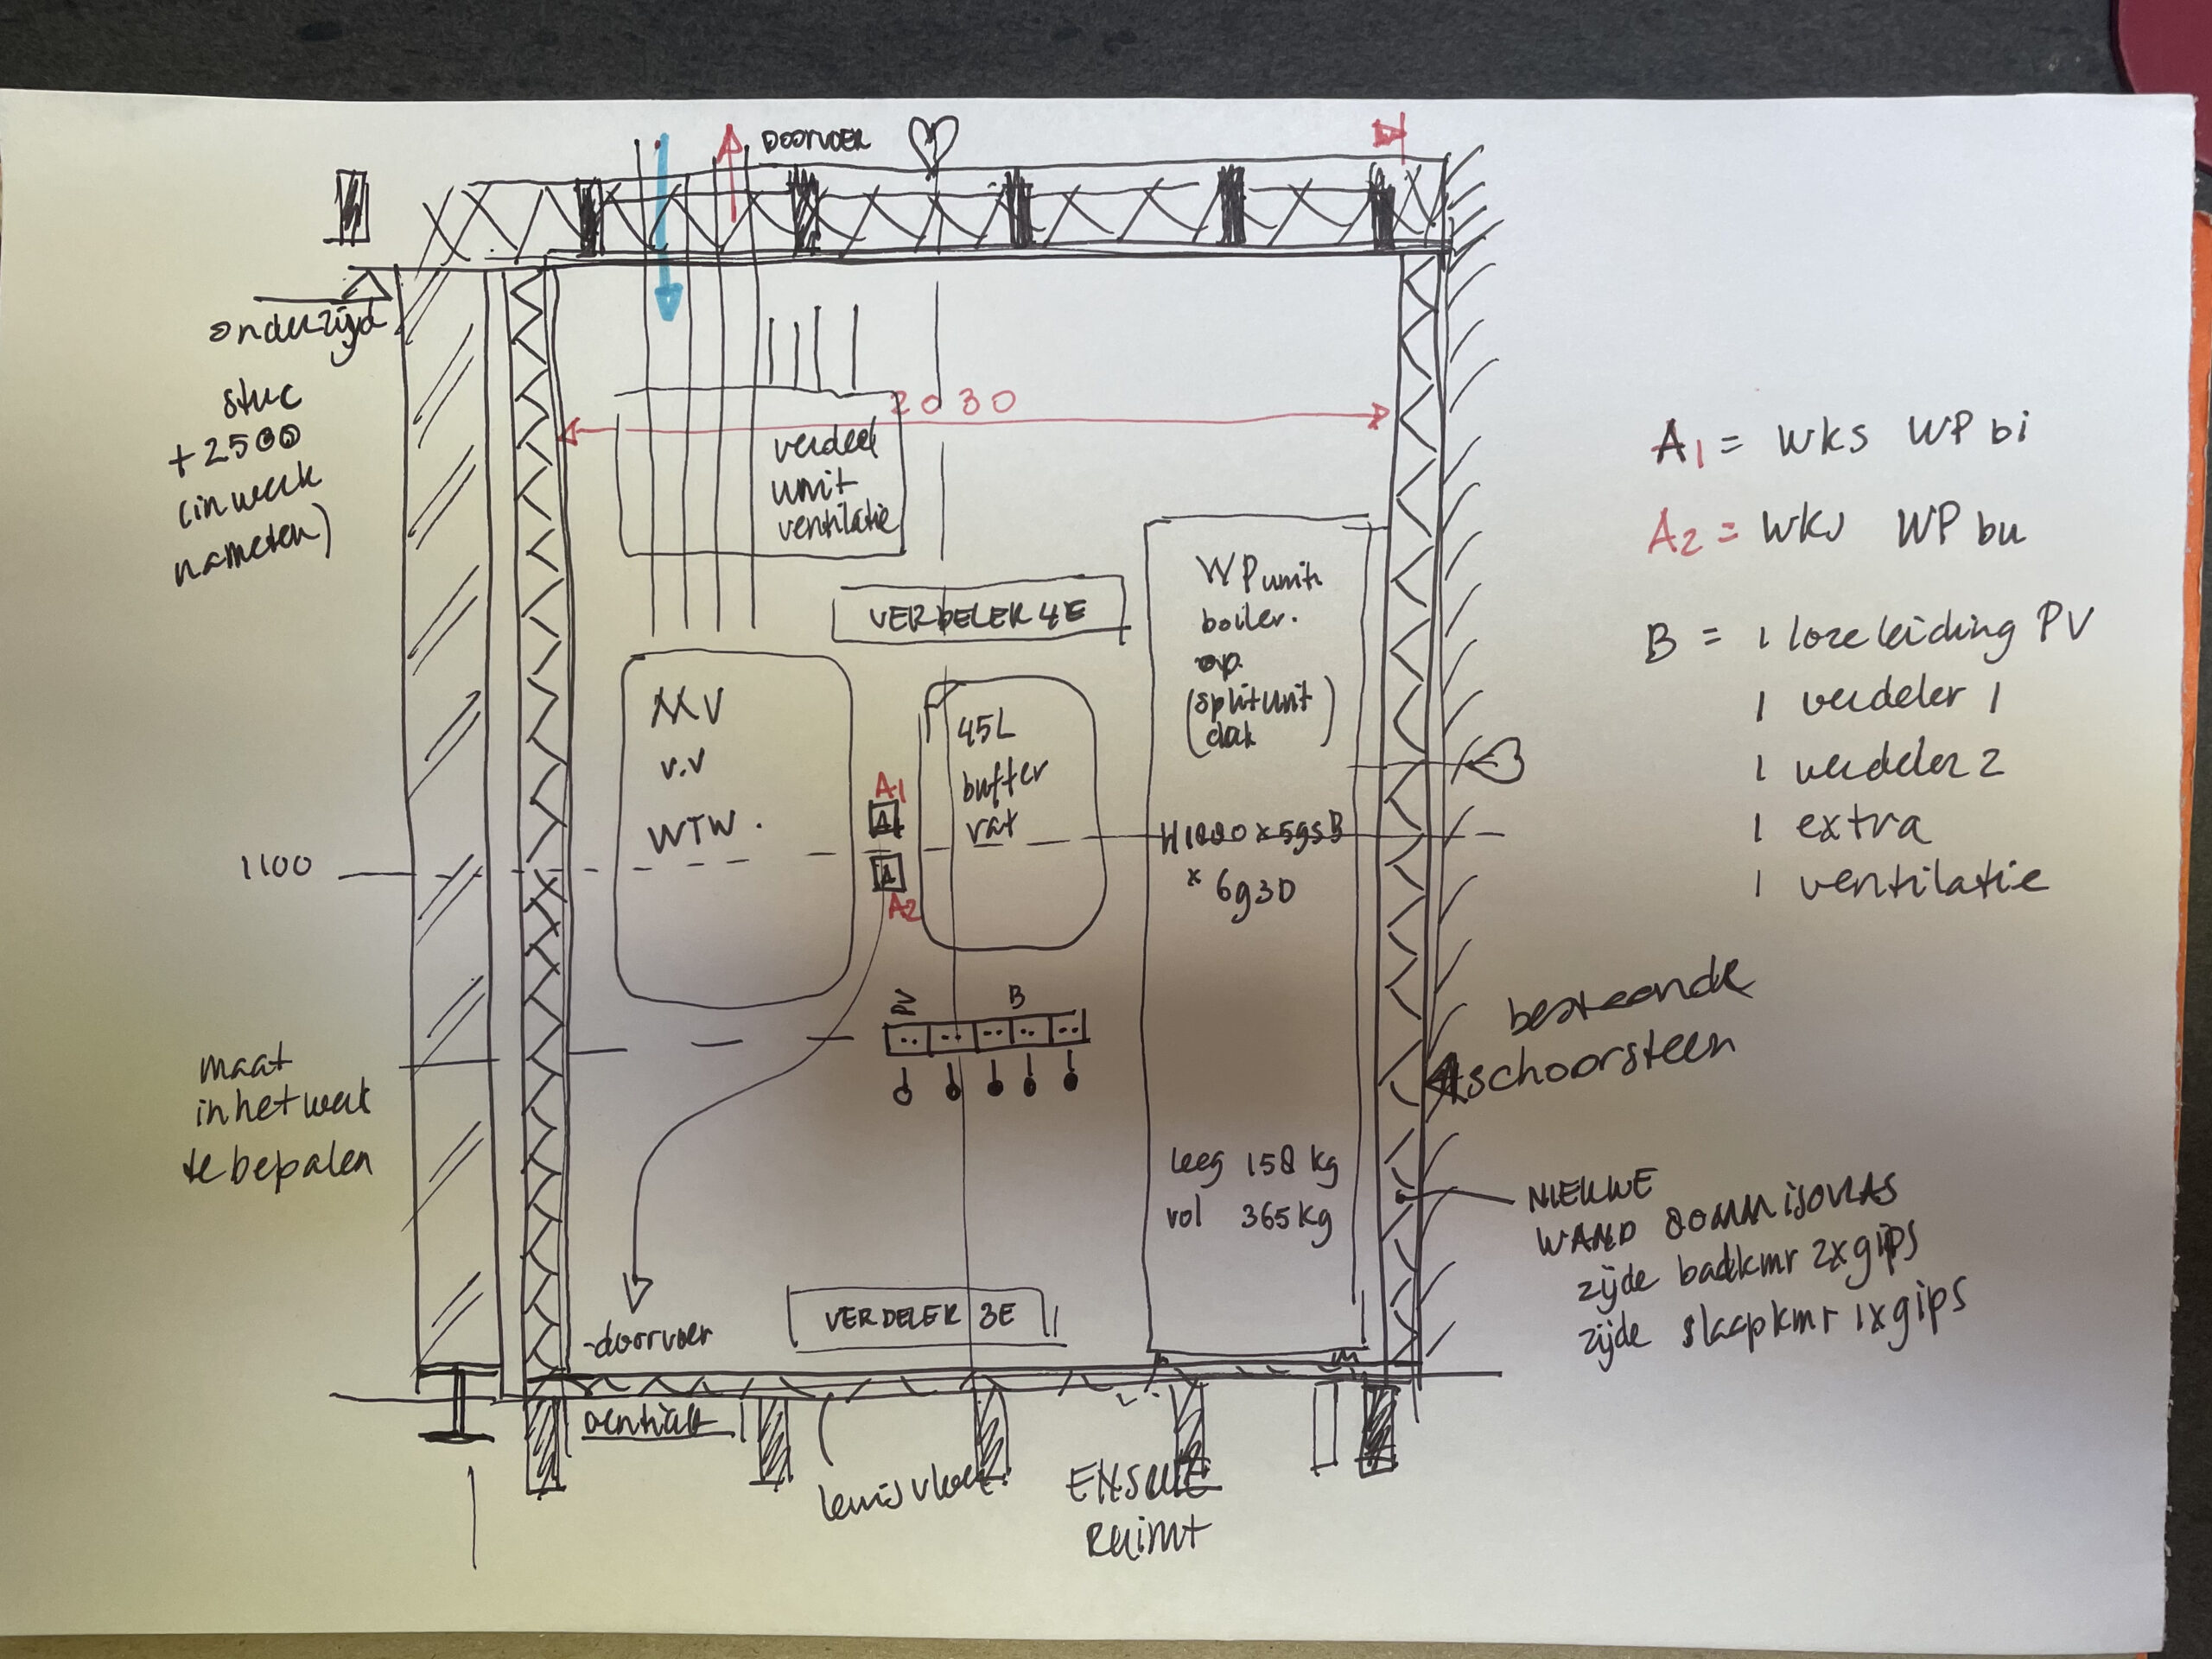 DOORVOER
onderzijd
stuc
+2500
(in werk
nameten)
2030
verdeel
unit
ventilatie
VERDELER 4E
WP unit
boiler.
op.
(splitunit)
dak
MV
v.v
WTW.
45L
buffer
vat
A1
A
A
A2
1100
x 6g30
B
maat
in het werk
te bepalen
leeg 158 kg
vol 365 kg
VERDELER 3E
doorvoer
ventilatie
lewisvloer
RUIMT
A1 = wks WP bi
A2 = wks WP bu
B = 1 loze leiding PV
1 verdeler 1
1 verdeler 2
1 extra
1 ventilatie
bestaande
schoorsteen
NIEUWE
WAND 80mm isovlas
zijde badkmr 2x gips
zijde slaapkmr 1x gips